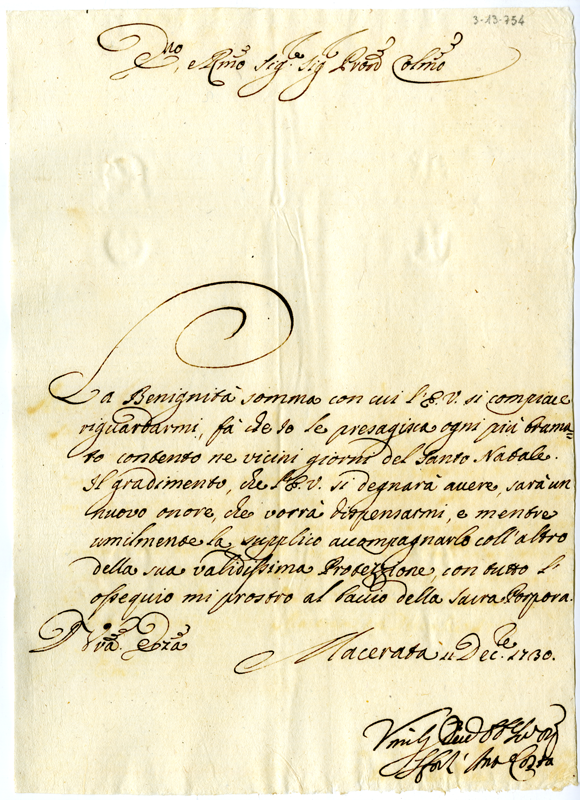 3-13-754
Emo, e Rmo Sig.re Sig.re Pron Colmo
La Benignità somma con cui l'E.V. si compiace
riguardarmi, fà che Io le presagisca ogni più brama=
to contento ne vicini giorni del Santo Natale.
Il gradimento, che l'E.V. si degnarà auere, sarà un
nuovo onore, che vorrà dispensarmi, e mentre
umilmente la supplico accompagnarlo coll'altro
della sua validissima Protezzione, con tutto l'
ossequio mi prostro al bacio della Sacra Porpora.
Di Vra Emza
Macerata 11 Dec.re 1730.
Umilis
Costa